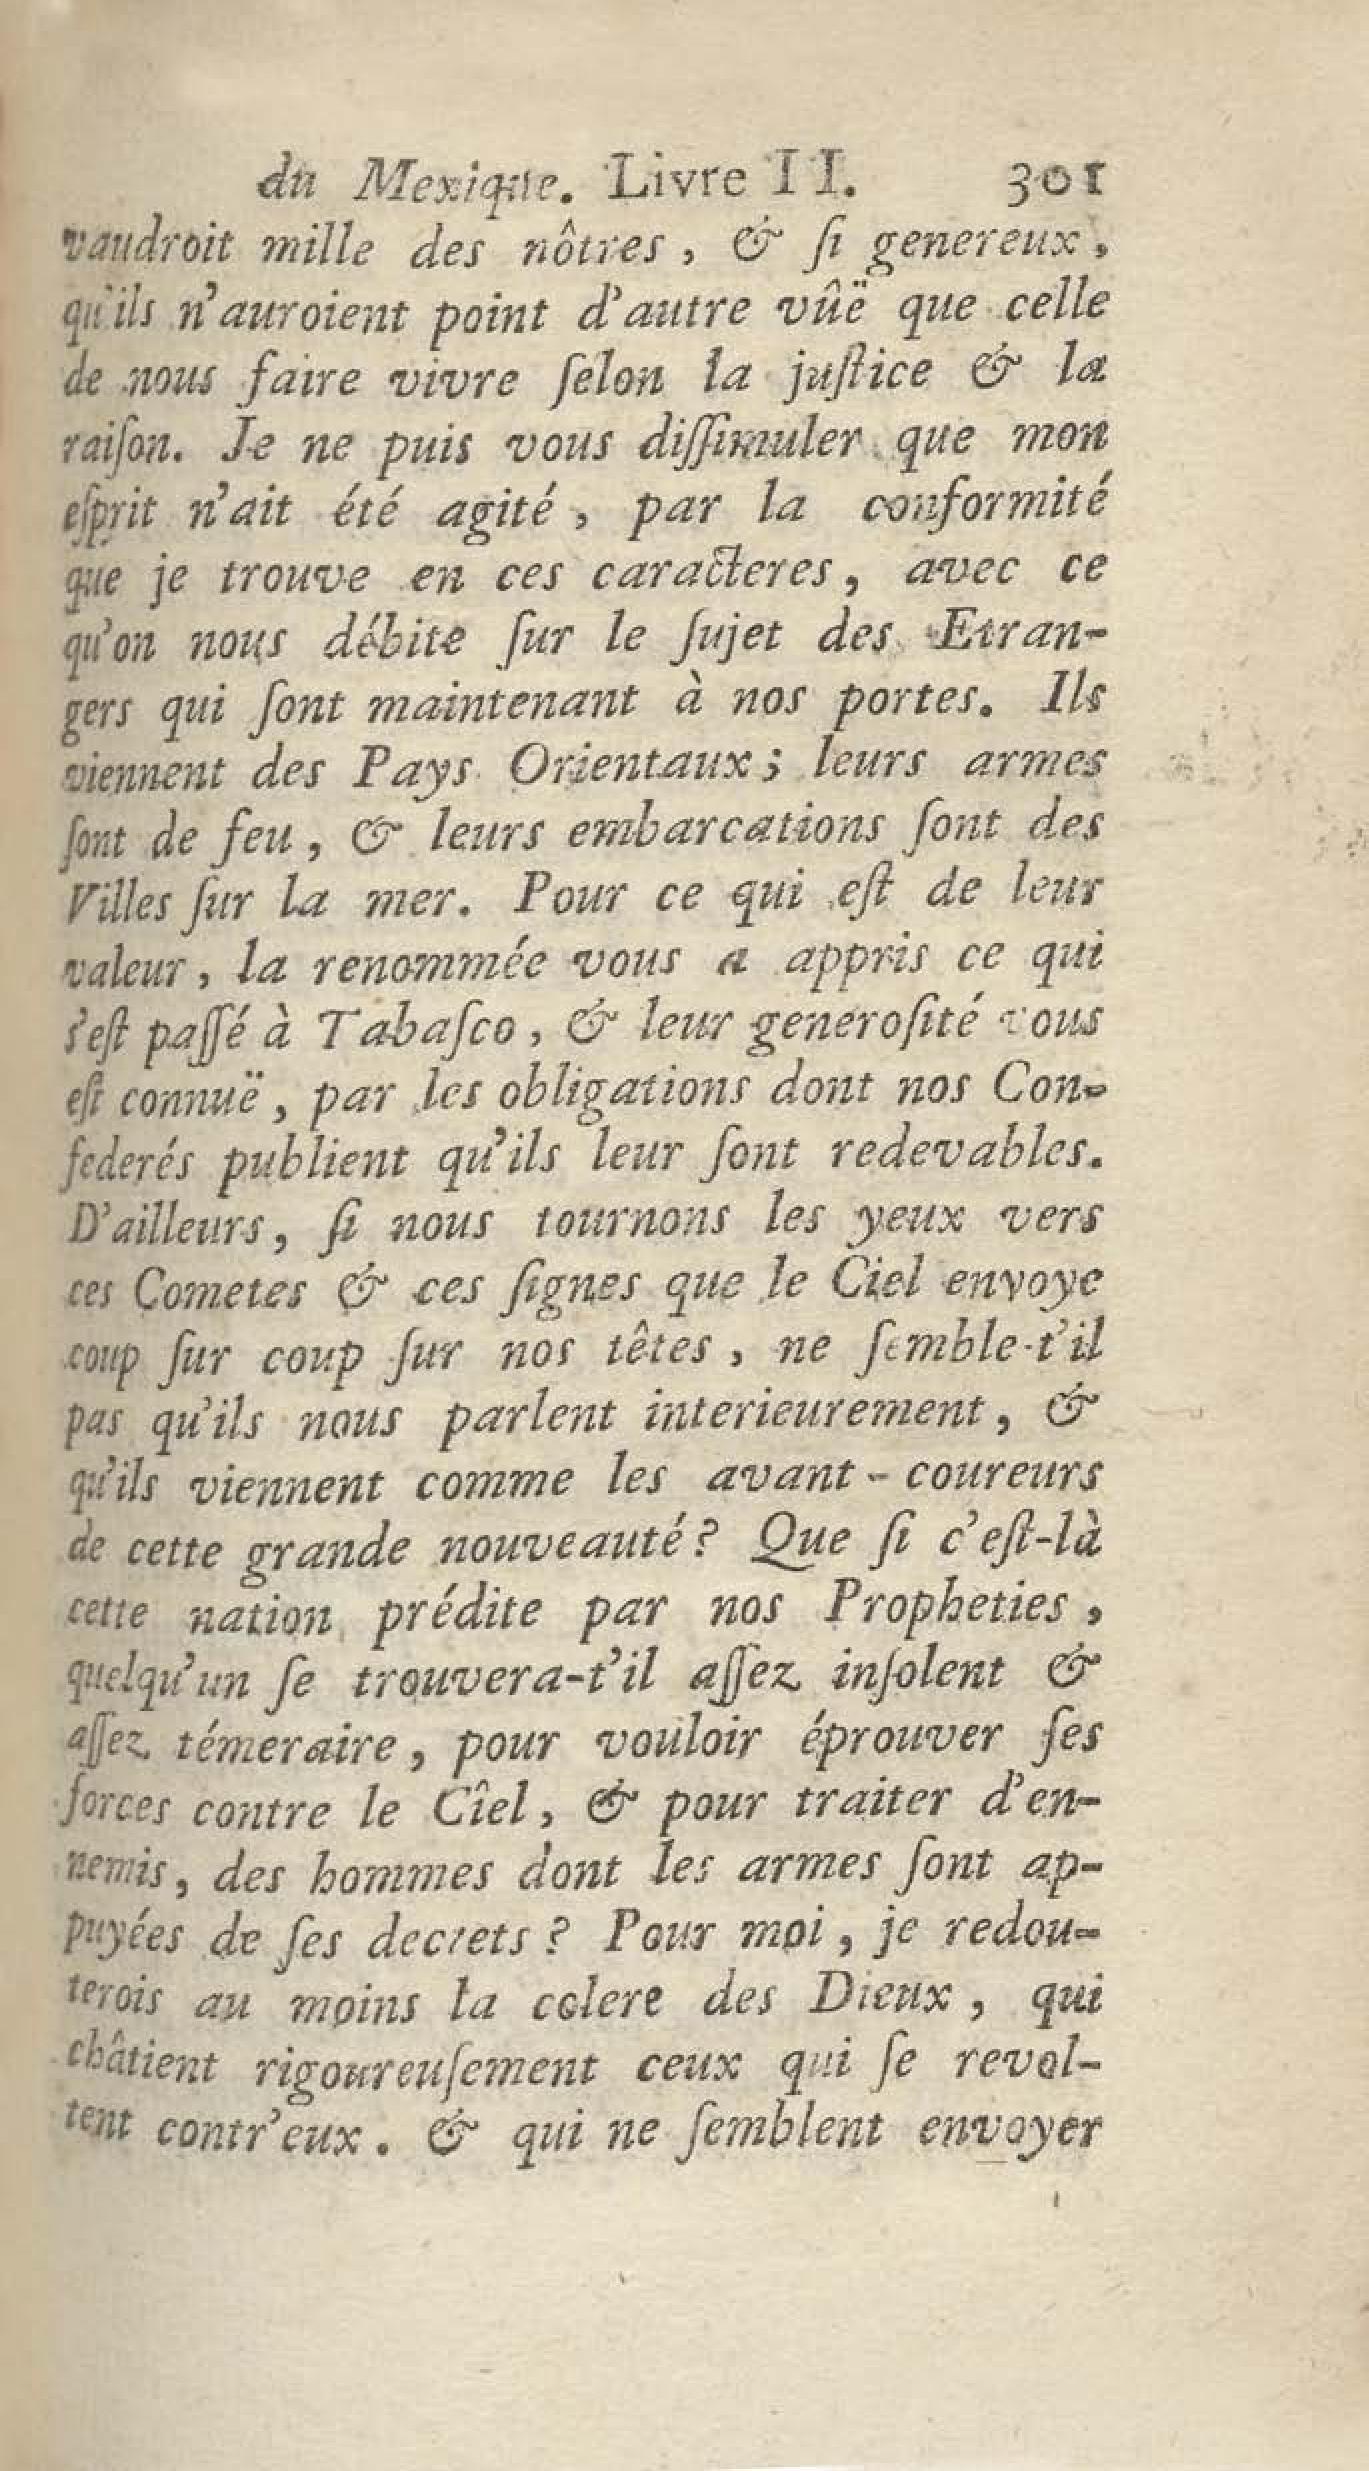 du Mexique. Livre II. 301
vaudroit mille des nôtres, & ſi genereux,
qu'ils n'auroient point d'autre vûë que celle
de nous faire vivre ſelon la juſtice & la
raiſon. Je ne puis vous diſſimuler que mon
eſprit n'ait été agité, par la conformité
que je trouve en ces caracteres, avec ce
qu'on nous débite ſur le ſujet des Etran-
gers qui ſont maintenant à nos portes. Ils
viennent des Pays Orientaux; leurs armes
ſont de feu, & leurs embarcations ſont des
Villes ſur la mer. Pour ce qui eſt de leur
valeur, la renommée vous a appris ce qui
s'eſt paſſé à Tabaſco, & leur generoſité vous
eſt connuë, par les obligations dont nos Con-
federés publient qu'ils leur ſont redevables.
D'ailleurs, ſi nous tournons les yeux vers
ces Cometes & ces ſignes que le Ciel envoye
coup ſur coup ſur nos têtes, ne ſemble-t'il
pas qu'ils nous parlent interieurement, &
qu'ils viennent comme les avant-coureurs
de cette grande nouveauté? Que ſi c'eſt-là
cette nation prédite par nos Propheties,
quelqu'un ſe trouvera-t'il aſſez inſolent &
aſſez témeraire, pour vouloir éprouver ſes
forces contre le Cîel, & pour traiter d'en-
nemis, des hommes dont les armes ſont ap-
puyées de ſes decrets? Pour moi, je redou-
terois au moins la colere des Dieux, qui
châtient rigoureuſement ceux qui ſe revol-
tent contr'eux. & qui ne ſemblent envoyer